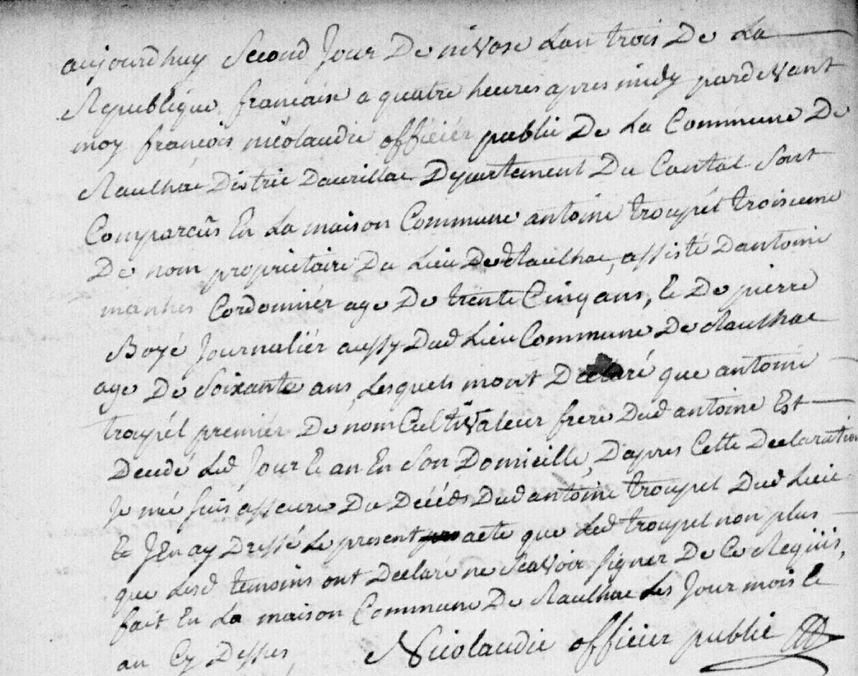 aujourdhuy Second Jour De nivose Lan trois De La
Republique francaise a quatre heures apres midy pardevant
moy francois nicolaudie officiér public De La Commune De
Raulhac District Daurillac Département Du Cantal Sont
Comparûs En La maison Commune antoine troupél troisieme
De nom proprietaire Du Lieu De Raulhac, assisté Dantoine
manhes Cordonniér age De trente Cinq ans, Et De pierre
Boyé Journaliér aussy Dud Lieu Commune De Raulhac
age De Soixante ans, Lesquels mont Declaré que antoine
troupél premiér De nom Cultivateur frere Dud antoine Est
Decedé Led Jour Et an En Son Domicille, D'apres Cette Declaration
Je me suis assure Du Décéds Dud antoine troupel Dud Lieu
Et Jen ay Dressé Le present acte que Led troupel non plus
que Lesd temoins ont Declare ne Scavoir Signer De Ce Requis,
fait En La maison Commune De Raulhac Les Jour mois Et
an Cy Dessus,
Nicolaudie officier public